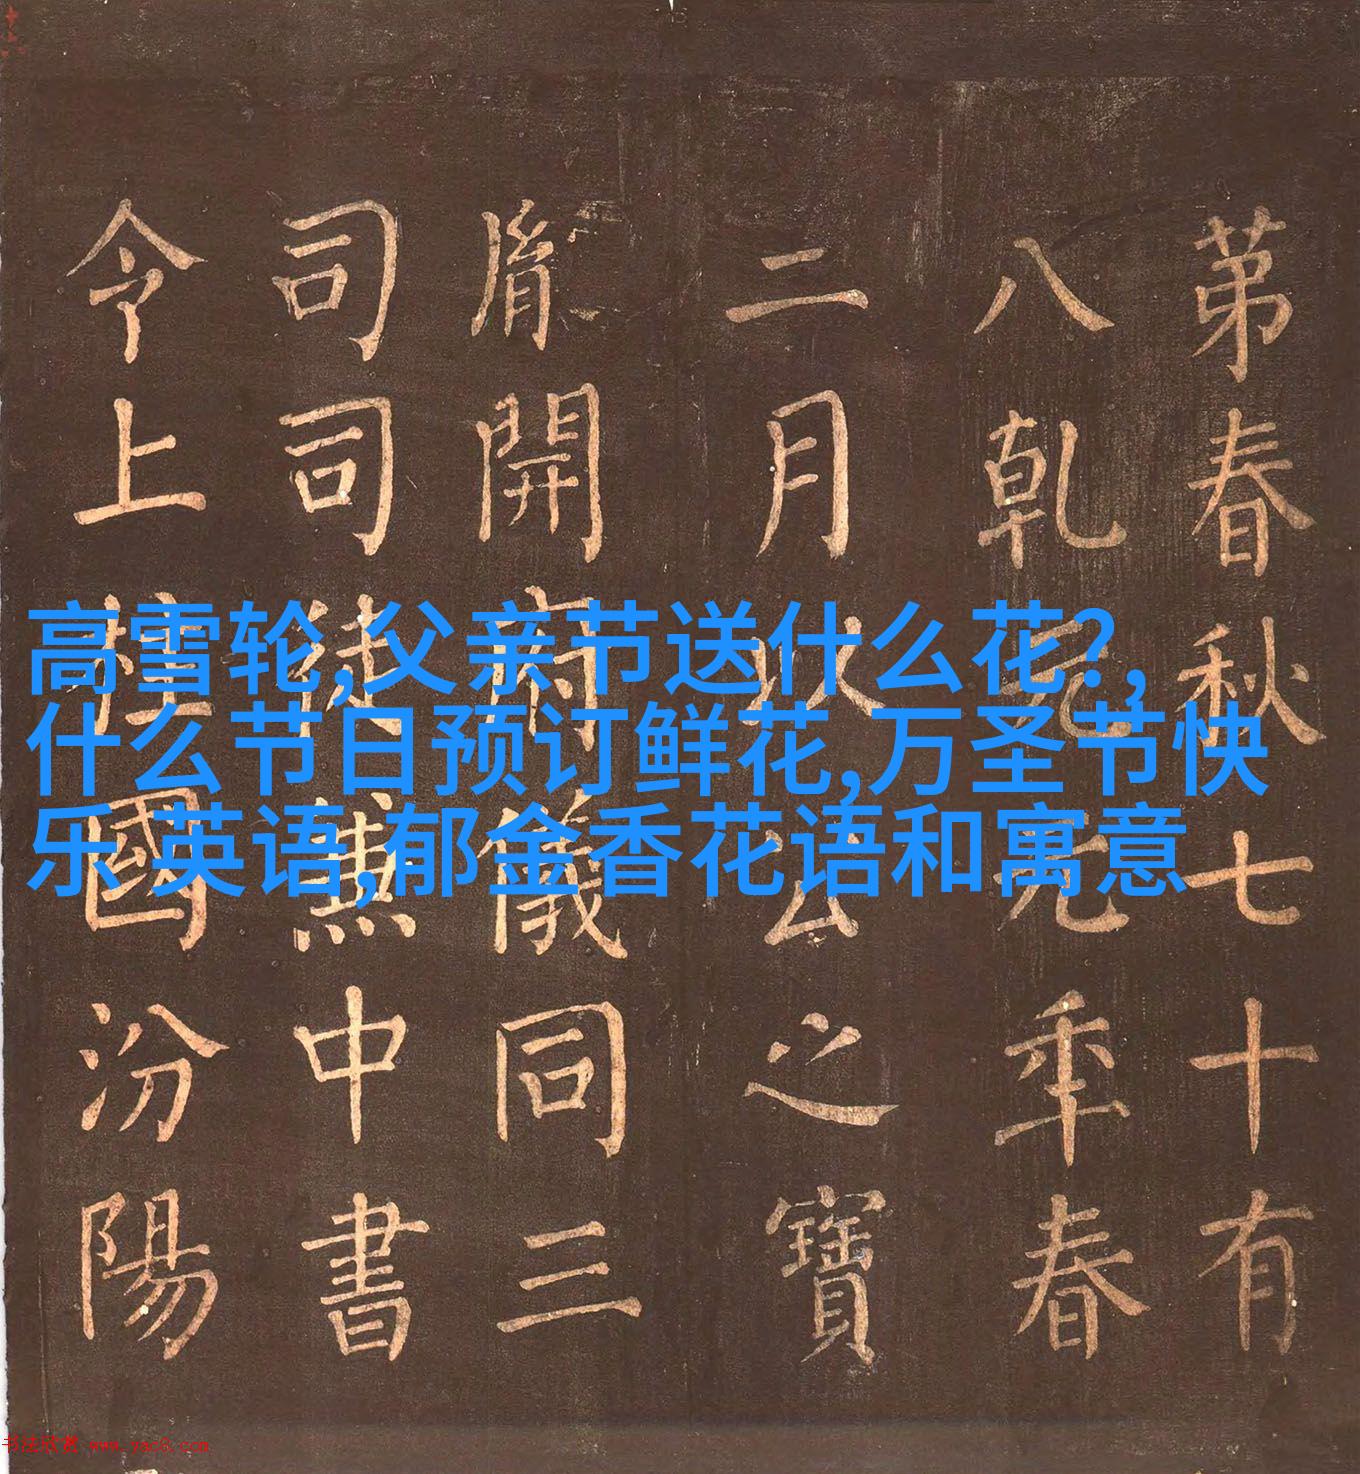 高雪轮,父亲节送什么花?,
什么节日预订鲜花,万圣节快
乐 英语,郁金香花语和寓意
苐春秋七十有
八乾元元年春
二月以公之寶
胤開府儀同三
司司徒兼中書
令上柱國汾陽
书法欣赏 www.yac8.com